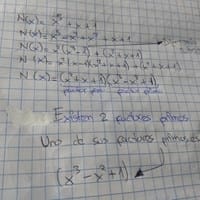 N(x) = x⁵ + x + 1
N(x) = x⁵ - x² + x² + x + 1
N(x) = x²(x³-1) + (x²+x+1)
N(x) = x²(x-1)(x²+x+1) + (x²+x+1)
N(x) = (x²+x+1)(x³-x²+1)
factor primo factor primo
Existen 2 factores primos
Uno de sus factores primos es
(x³ - x² + 1)